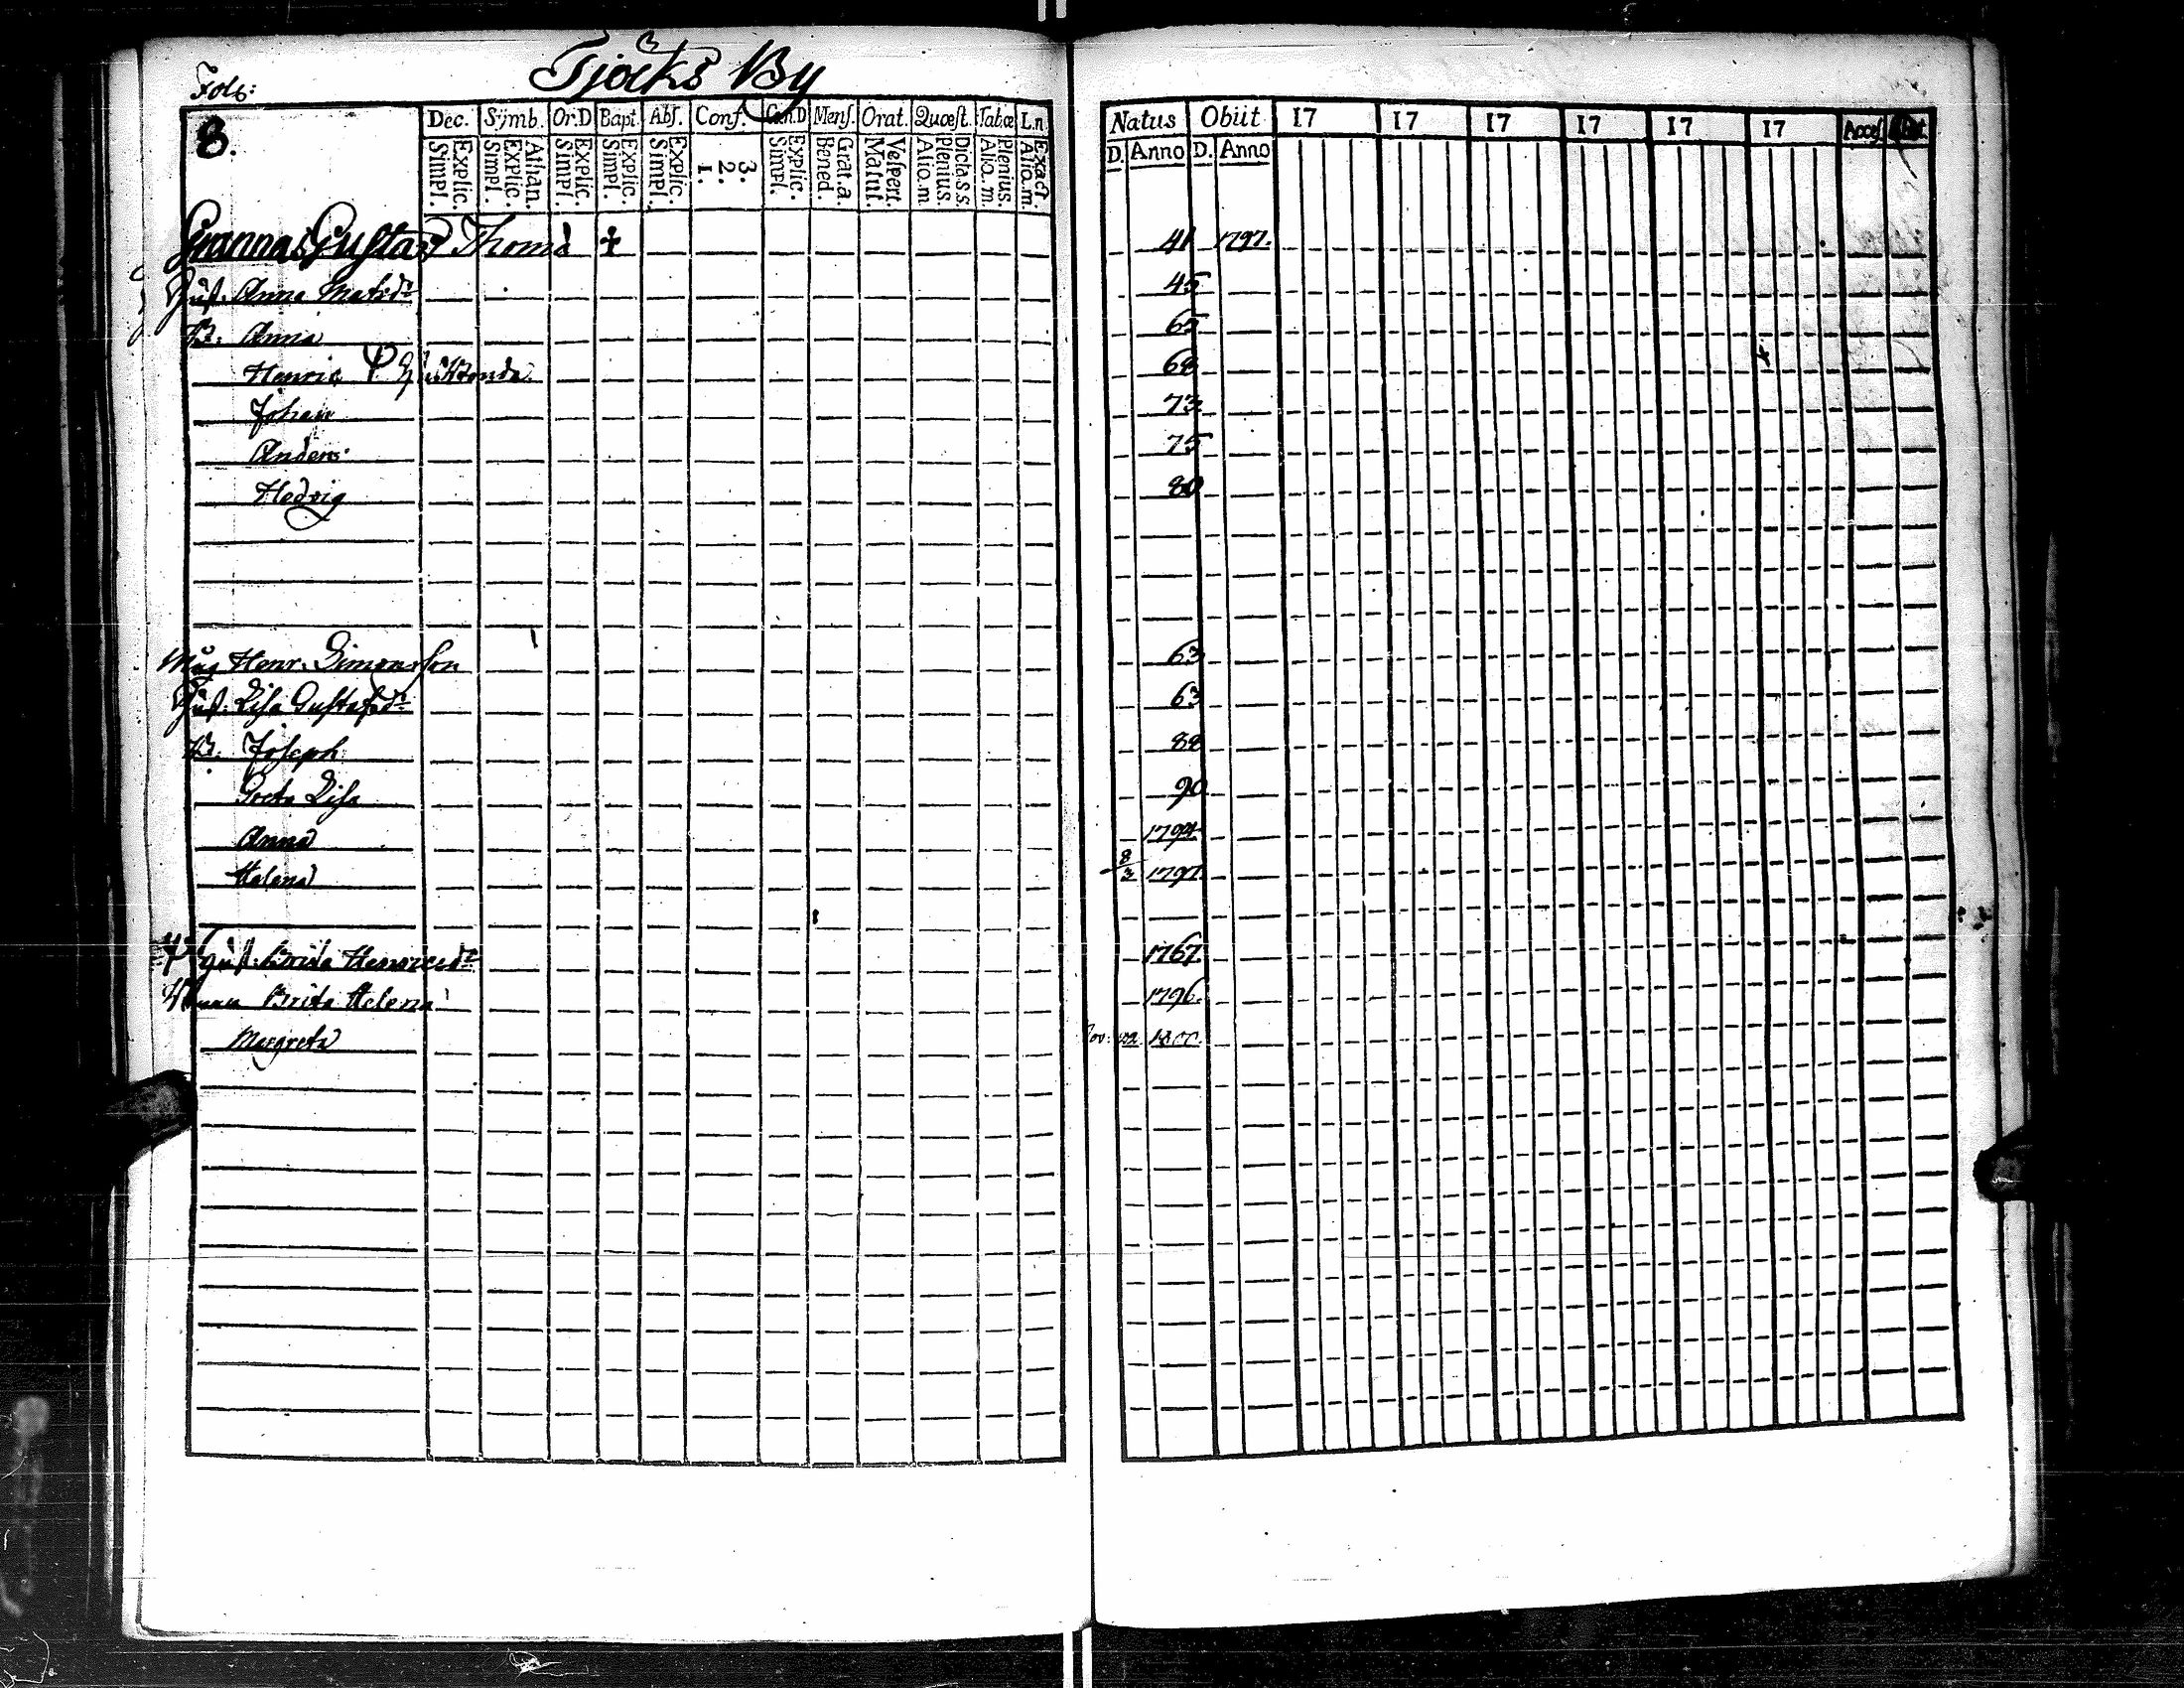 Fol: Tjöcks By
8. Dec. Symb. Or.D Bapt. Abs. Conf. Cœn.D Mens. Orat. Quæst. Tabæ L.n
Explic. Simpl. Athan. Explic. Simpl. Explic. Simpl. Explic. Simpl. Explic. Simpl. 3. 2. 1. Explic. Simpl. Grat.a. Bened. Vespert. Matut. Dicta.s.s. Plenius. Alio.m. Plenius. Alio.m. Exact. Alio.m.
Natus Obiit 17 17 17 17 17 17 Acces.
D. Anno D. Anno
Grannas Gustav Thoms ☩ 41 1797.
Hust. Anna Matsdr 45
B. Anna 65
Henric 68
Johan 73
Anders 75
Hedvig 80
Måg Henr. Simonsson 63
Hust. Lisa Gustafsdr 63
B. Joseph 88
Greta Lisa 90
Anna 1794
Helena 8/3 1797.
Hust. Brita Henricsdr 1767.
Brita Helena 1796.
Margreta Nov: 22. 1800.